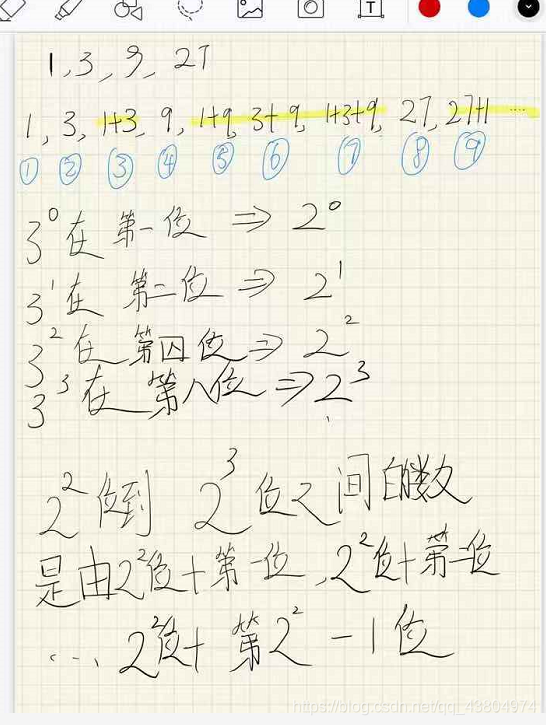 T
1, 3, 9, 27
1, 3, 1+3, 9, 1+9, 3+9, 1+3+9, 27, 27+1 ……
① ② ③ ④ ⑤ ⑥ ⑦ ⑧ ⑨
3⁰在 第一位 ⇒ 2⁰
3¹在 第二位 ⇒ 2¹
3²在 第四位 ⇒ 2²
3³在 第八位 ⇒ 2³
2²位到 2³位之间的数
是由2²位+第一位, 2²位+第二位
… 2²位+ 第2²-1位
https://blog.csdn.net/qq_43804974